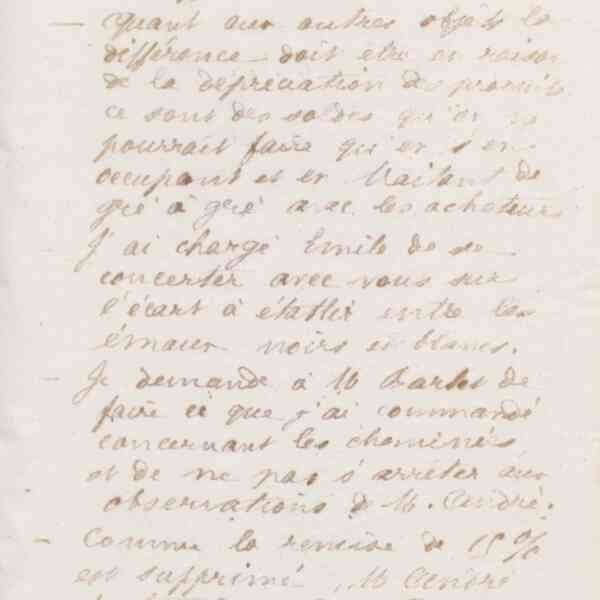 — Quant aux autres objets la
différence doit etre en raison
de la dépréciation des produits
ce sont des soldes qu'on ne
pourrait faire qu'en s'en
occupant et en traitant de
gré à gré avec les acheteurs
J'ai chargé Emile de se
concerter avec vous sur
l'écart à établir entre les
émaux noirs et blancs.
— Je demande à M. Barbet de
faire ce que j'ai commandé
concernant les cheminées
et de ne pas s'arrêter aux
observations de M. André.
— Comme la remise de 15 %
est supprimé, M André